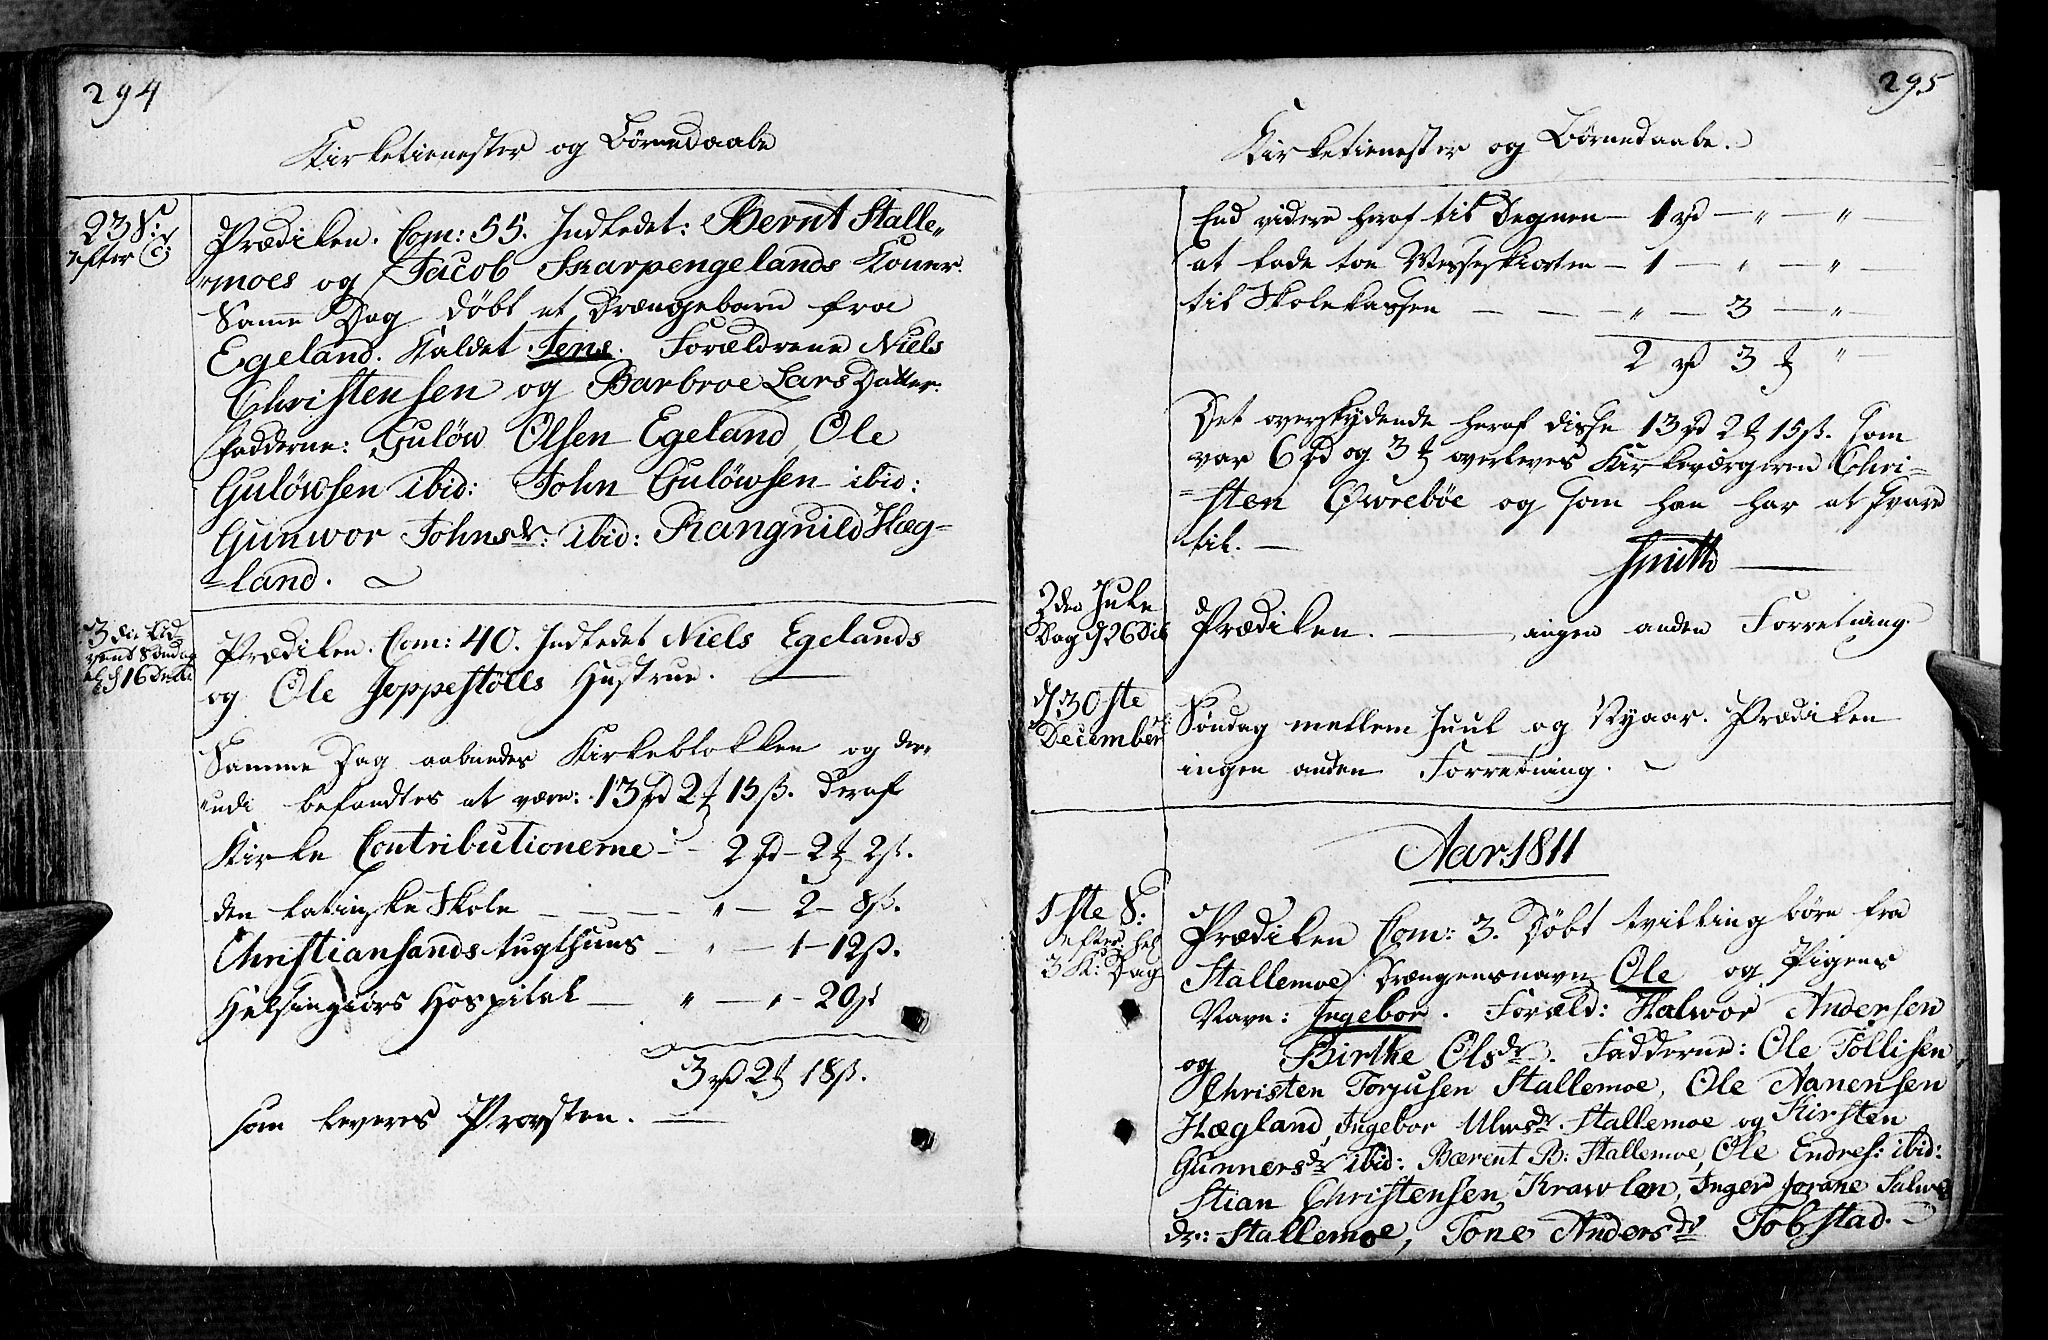 294
Kirketienester og Børnedaabe
23 S:
efter T:
Prædiken. Com: 55. Indledet: Bernt Stalle„
„moes og Jacob Skarpengelands Koner.
Samme Dag døbt et Drængebarn fra
Egeland. Kaldet Jens. Forældrene Niels
Christensen og Barbroe Lars Datter.
Fadderne: Guløw Olsen Egeland, Ole
Guløwsen ibid: John Guløwsen ibid:
Gunwor Johnsdr: ibid: Rangnild Hæg-
-land.
3die Ad
vent Søndag
d 16 Decbr
Prædiken. Com: 40. Indledet Niels Egelands
og Ole Joppestølls Hustrue.
Samme Dag aabnedes Kirkeblokken og der„
„udi befandtes at være: 13 rd 2 ƒ 15 ß. deraf
Kirke Contributionerne - 2 rd - 2 ƒ 2 ß.
den latinske Skole - - - - „ - 2 - 8 ß.
Christiansands tugthuus - „ - 1 - 12 ß.
Helsingiørs Hospital - „ - „ - 20 ß
3 rd 2 ƒ 18 ß.
som leveres Provsten.
295
Kirketienester og Børnedaabe.
End videre heraf til Degnen - 1 rd - „ - „ -
at lade toe Messeskiorten - 1 - „ - „ -
til Skolekassen - - - „ - 3 - „
2 rd 3 ƒ „ -
Det overskydende heraf disse 13 rd 2 ƒ 15 ß. som
var 6 rd og 3 ƒ overleves Kirkeværgeren Chri-
-sten Øwrebøe og som han har at svare
til. -
Smith
2den Jule
Dag d 26 Dec
Prædiken. - ingen anden Forretning.
d 30ste
December
Søndag mellem Juul og Nyaar. Prædiken
ingen anden Forretning.
Aar 1811
1ste S:
efter hel
3 K: Dag
Prædiken Com: 3. Døbt tvilling børn fra
Stallemoe, Drængens navn Ole og Pigens
Navn: Ingebor. Foræld: Halwor Andersen
og Birthe Olsdr. Fadderne: Ole Tollisen
Christen Torjusen Stallemoe, Ole Aanensen
Hægland, Ingebor Ulwsdr. Stallemoe og Kirsten
Gunnersdr ibid: Bærent B: Stallemoe, Ole Endres: ibid:
Stian Christensen Krawlen, Inger Jorane Salwe
dr: Stallemoe, Tone Andersdr Tobstad.